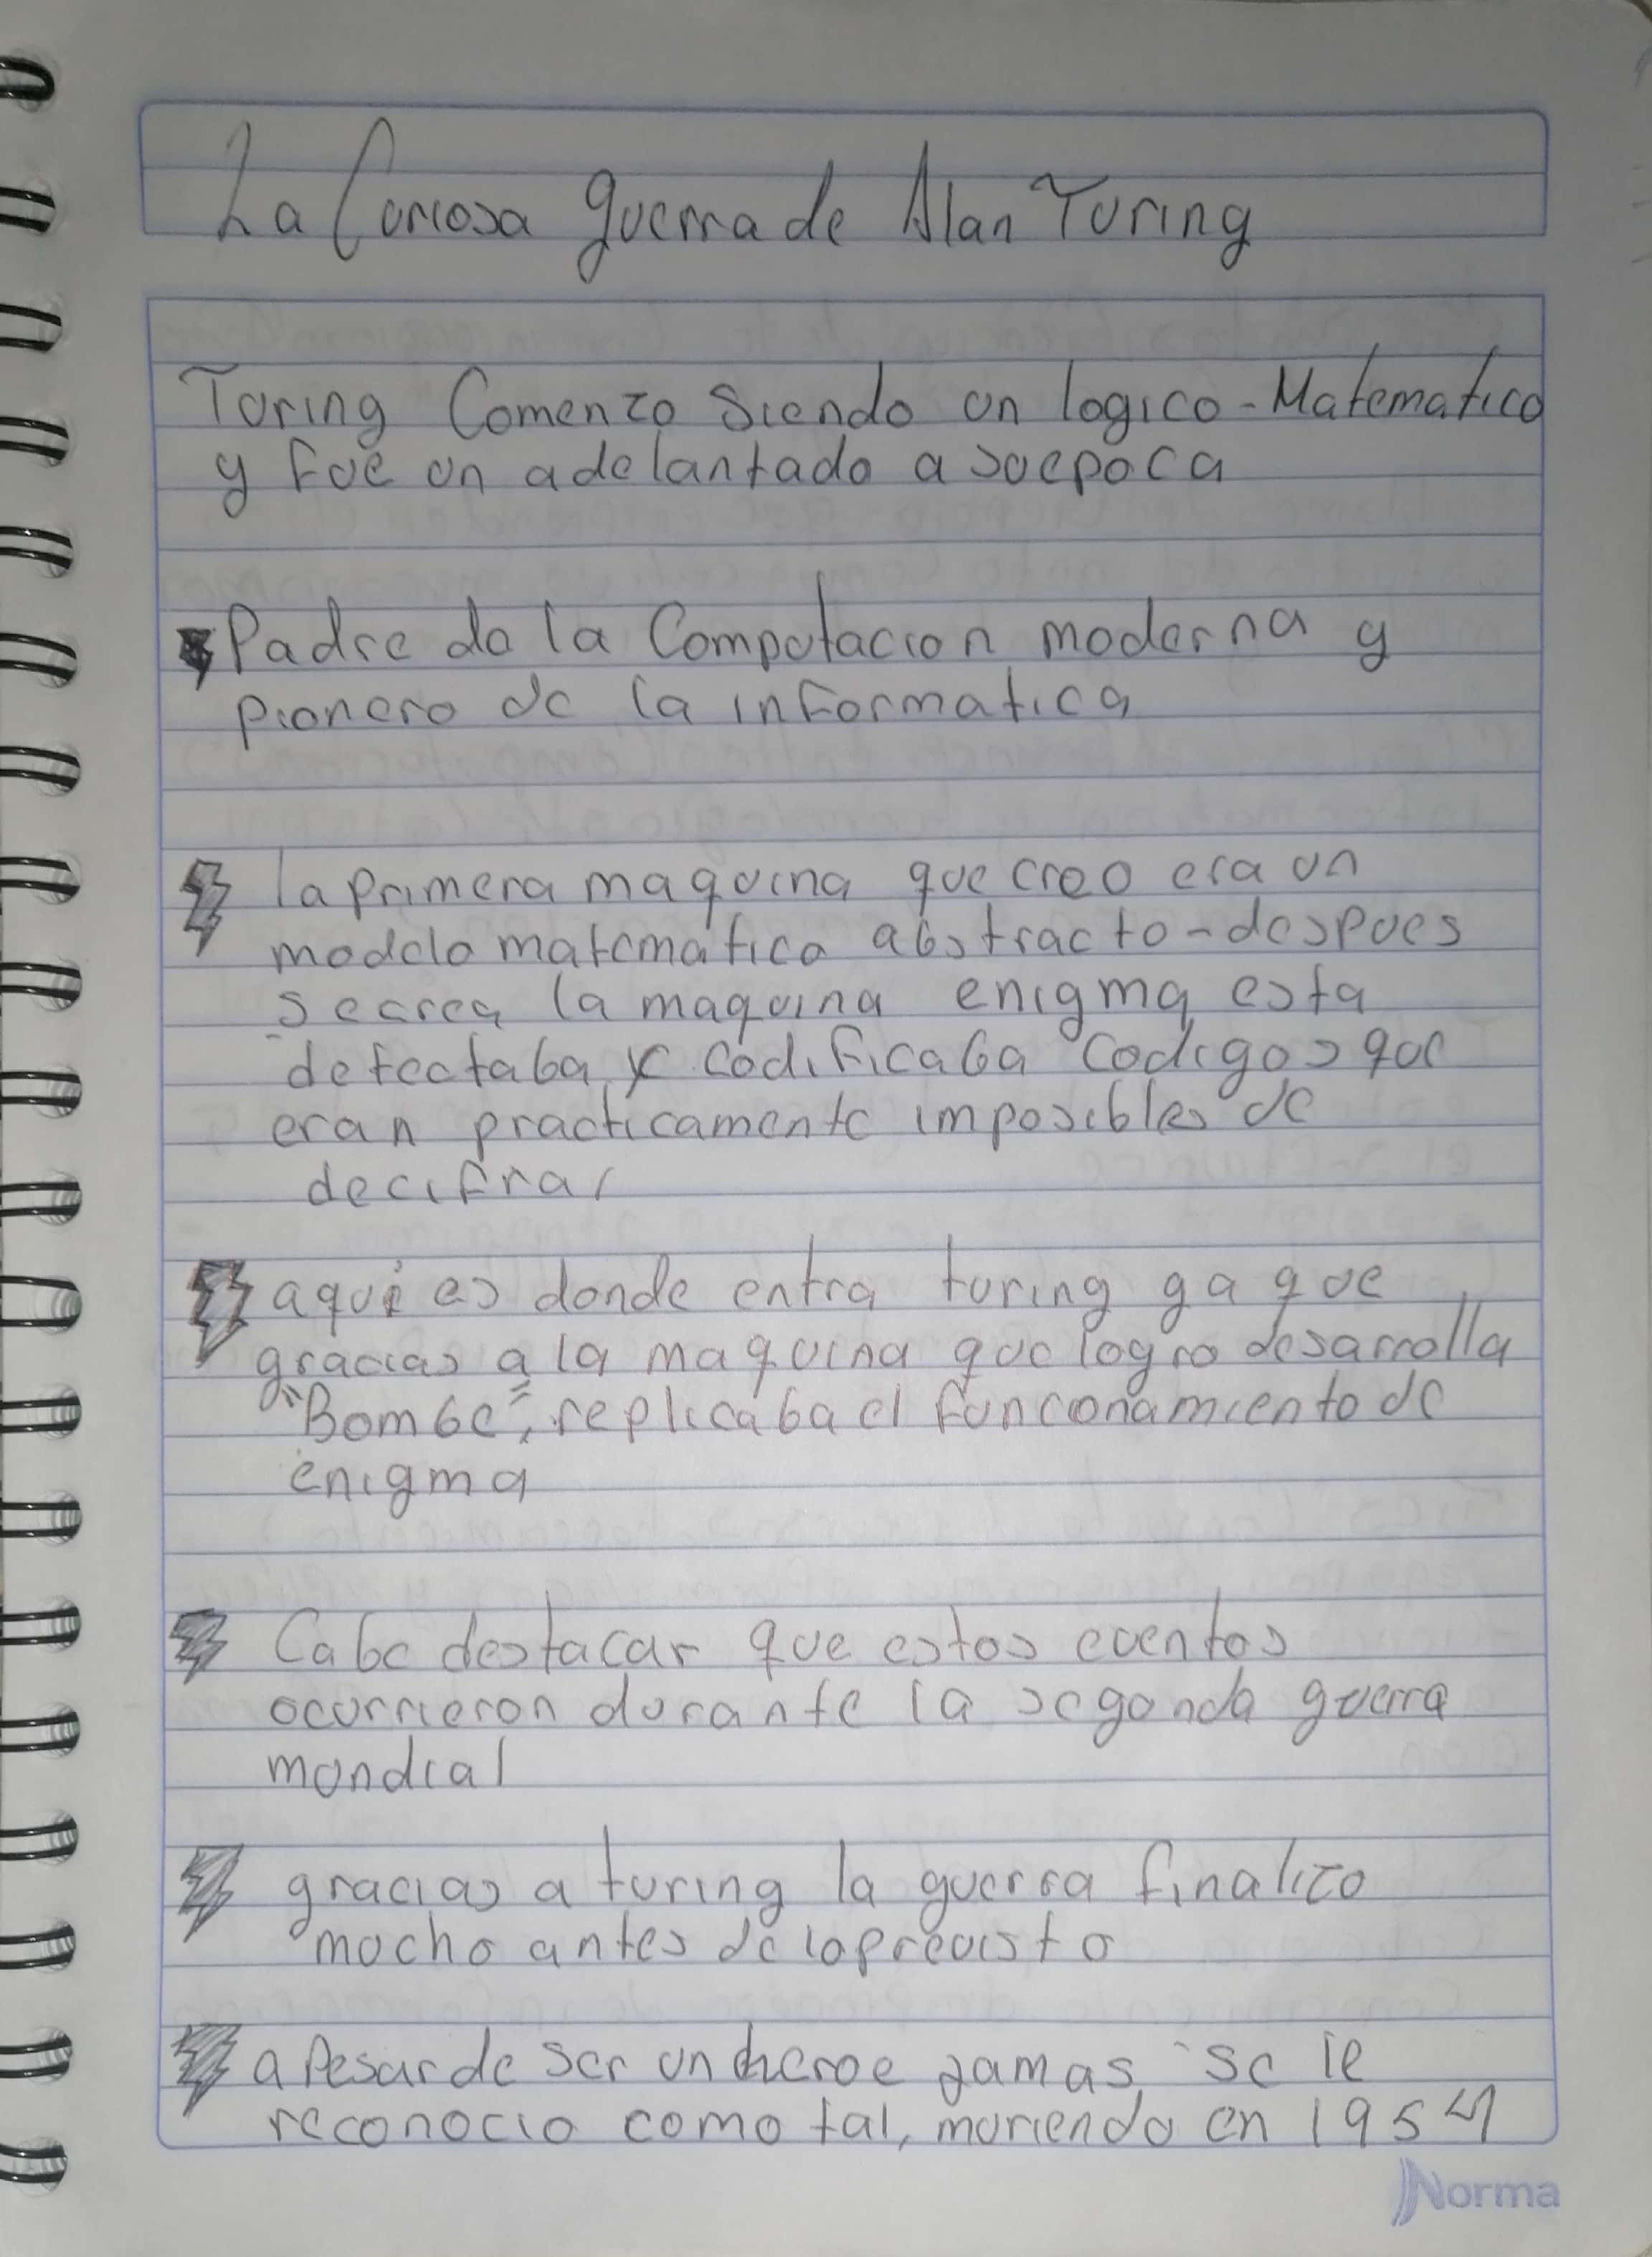 La Curiosa guerra de Alan Turing
Turing Comenzo Siendo un logico-Matematico
y fue un adelantado a su epoca
Padre de la Computacion moderna y
pionero de la informatica
la primera maquina que creo era un
modelo matematico abstracto-despues
se crea la maquina enigma esta
detectaba y codificaba codigos que
eran practicamente imposibles de
decifrar
aqui es donde entra turing ya que
gracias a la maquina que logro desarrolla
"Bombe", replicaba el funcionamiento de
enigma
Cabe destacar que estos eventos
ocurrieron durante la segunda guerra
mundial
gracias a turing la guerra finalizo
mucho antes de lo previsto
a Pesar de ser un heroe jamas se le
reconocio como tal, muriendo en 1954
Norma